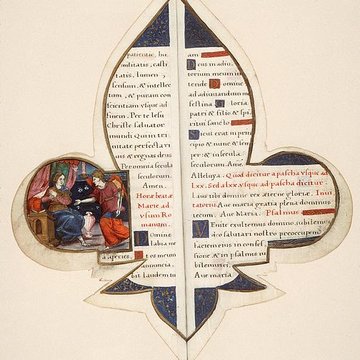 patientie, hu
militatis, casti
tatis, lumen
sensum, & intelle
ctus, & puram con
scientiam usque ad
finem. Per te Iesu
Christe saluator
mundi Qui in tri
nitate perfecta
uis & regnas deus
Per omnia secula
seculorum.
Amen.
Horæ beatæ
Mariæ ad
usum Ro
manum.
omine
a aperies. Et
laudem
eus in adiu
torium meum inten
de.
ad adiuuandum me
festina Gloria
patri & filio & spi
ritui sanc
cipio & nunc & sem
per: & in secula
seculorum. Amen
Alleluya. Quod dicitur a pascha usque ad
lxx. Sed a lxx usque ad pascha dicitur
laus tibi domine rex æternæ gloriæ. Inui
tatorium. Aue Maria gratia plena dominus
tecum. Aue Maria. Psalmus
Venite exultemus domino
deo salutari nostro: preoccupem
faciem eius in confes
sione & in psalmis iu
bilemus ei
Aue maria